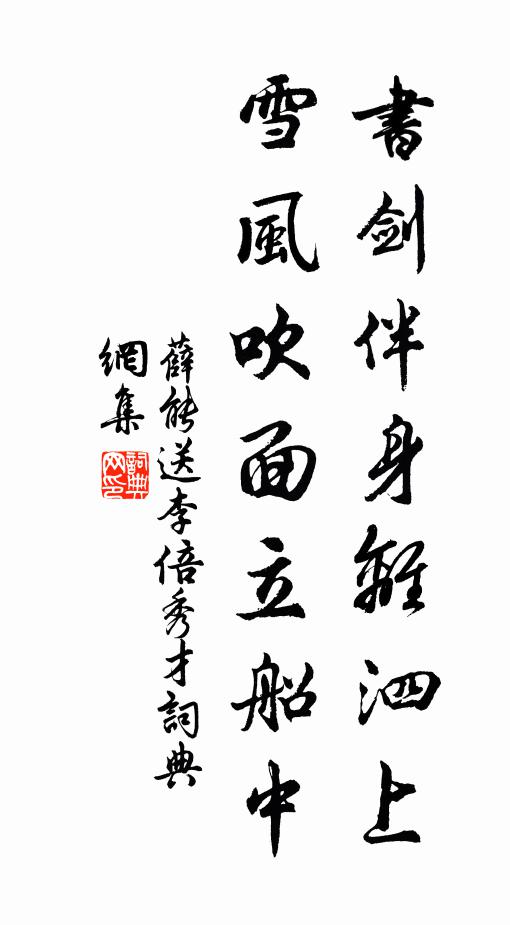 書劍伴身離泗上
雪風吹面立船中
薛能送李倍秀才詞典
網集
詞典
网印